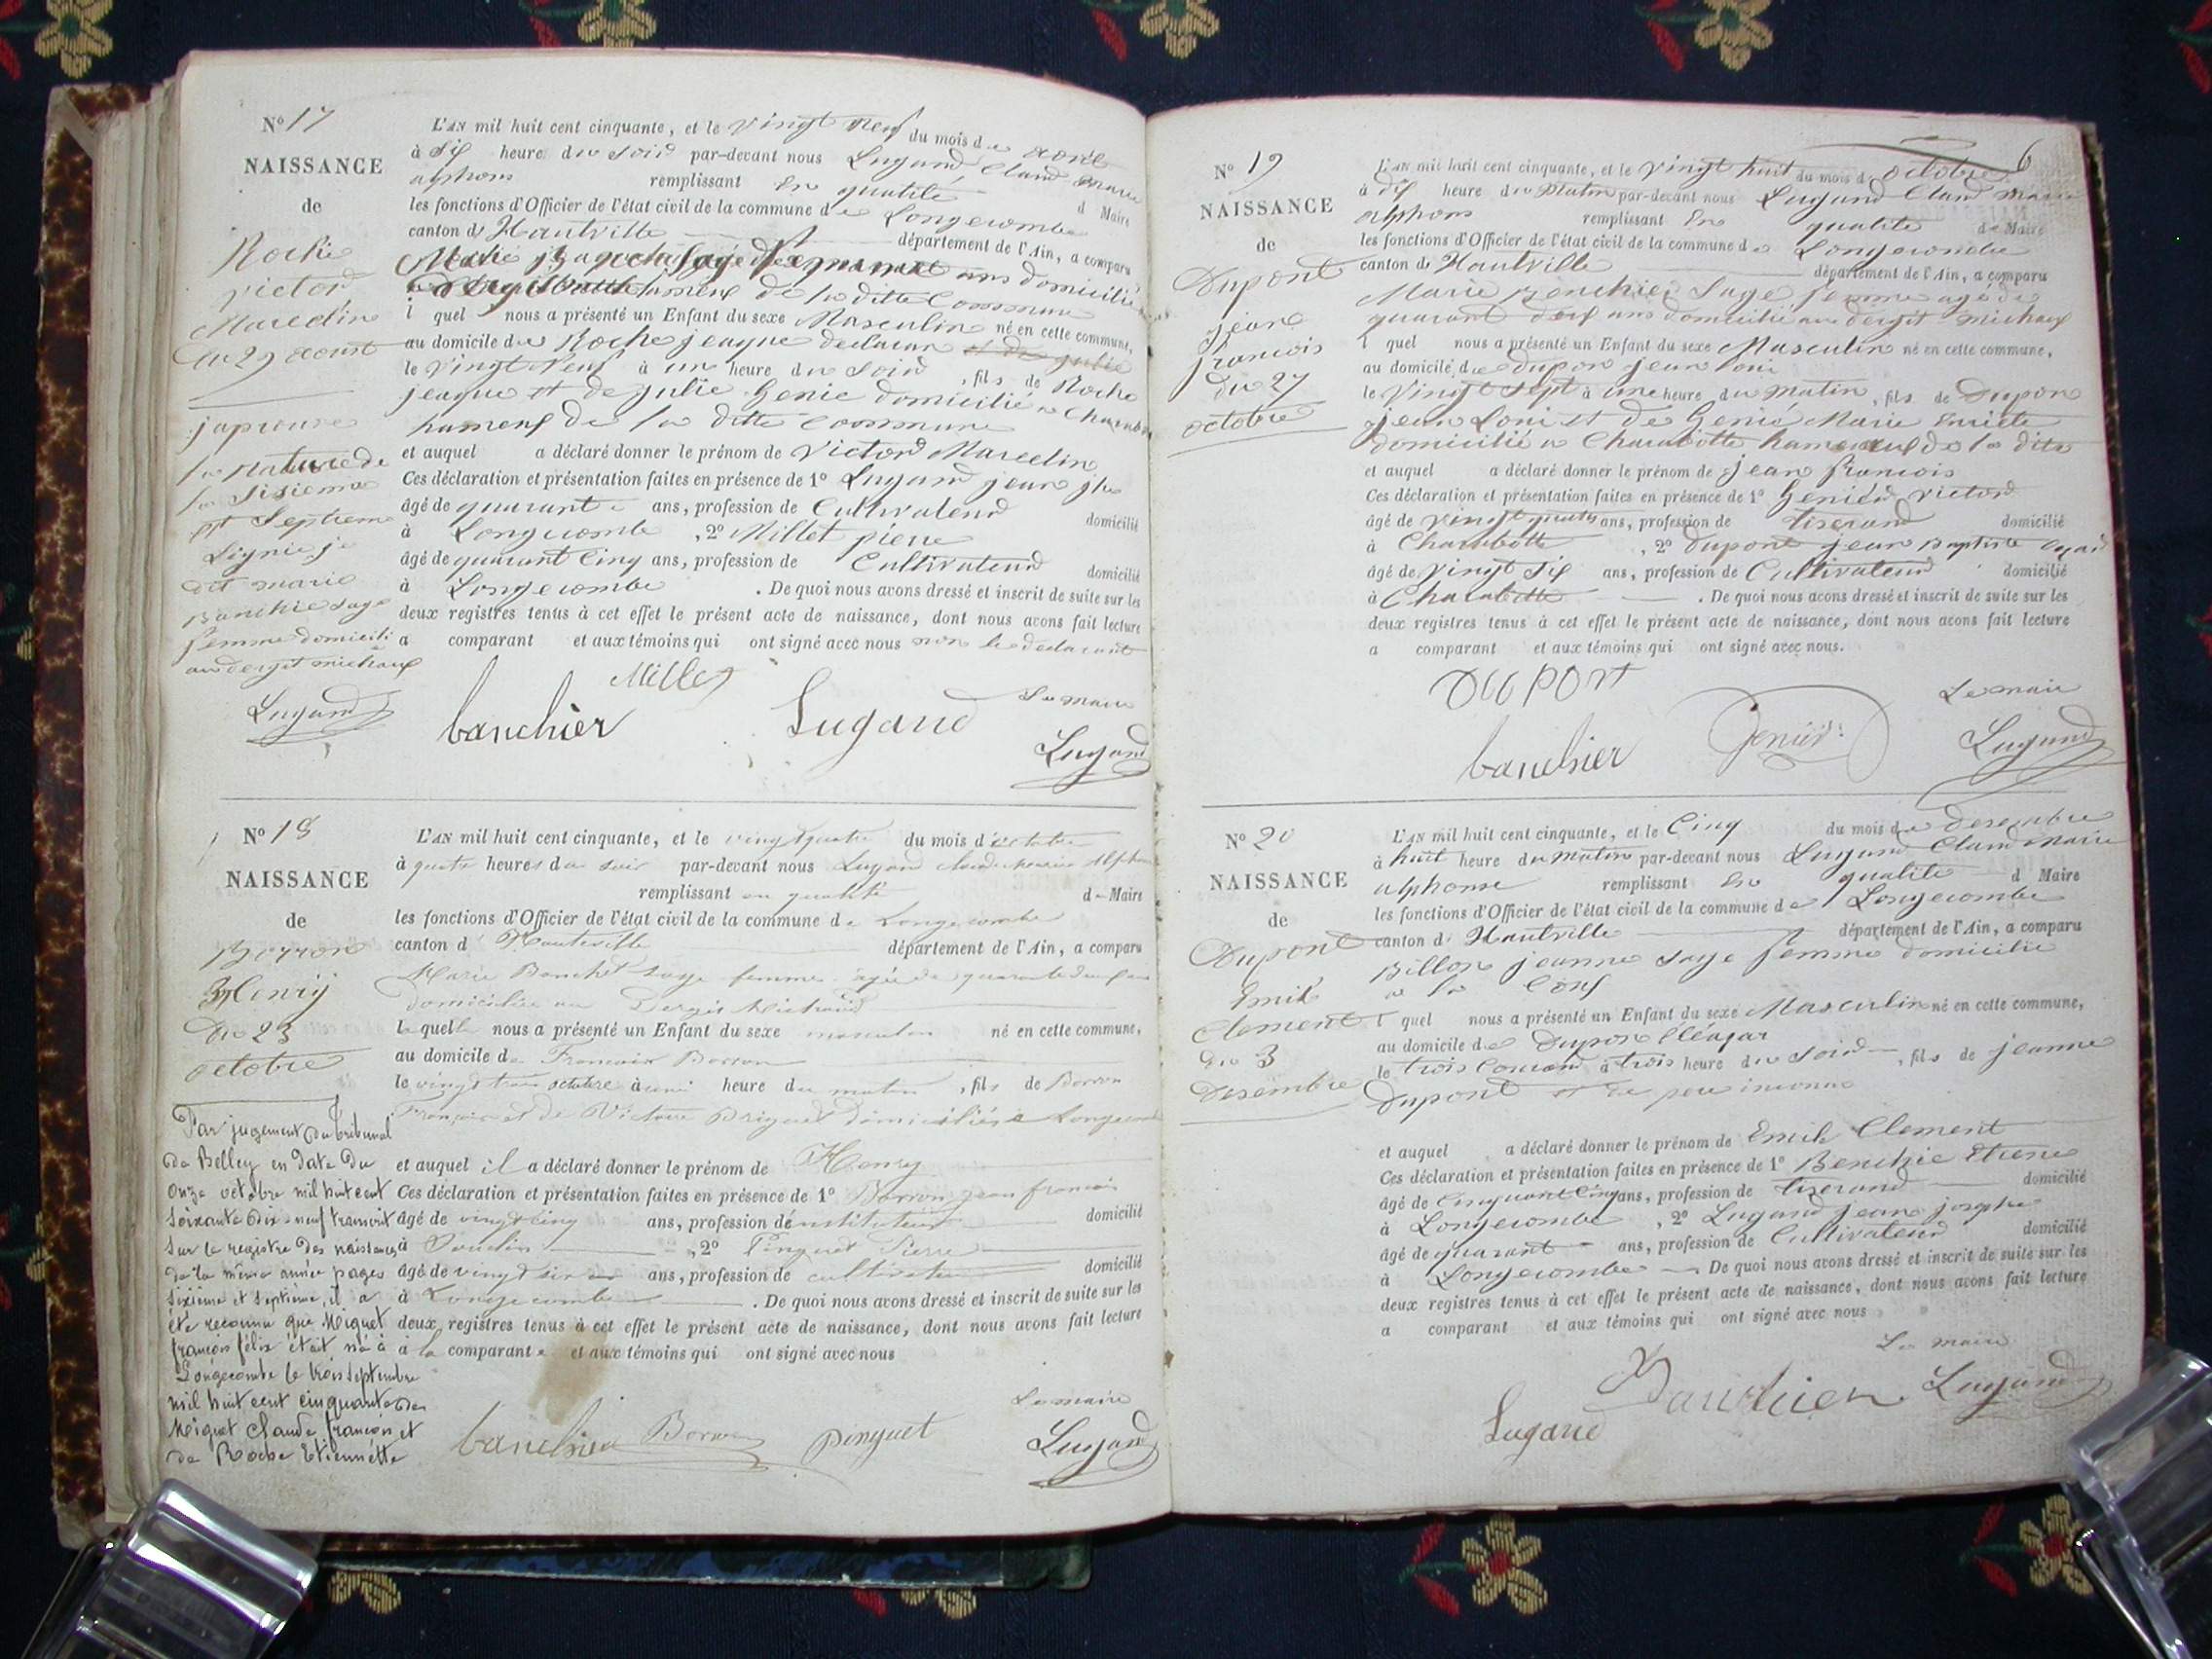 N° 17
NAISSANCE
de
Roche
victor
Marcelin
du 29 aoust
japrouve
la Nature de
la sisieme
et septieme
Lignie je
dit marie
Banchie sage
femme domicili
au dergit michaux
Lugand
L'AN mil huit cent cinquante, et le vingt neuf du mois d aoust
à six heure du soir par-devant nous Lugand Claud marie
alphons remplissant En qualité d Maire
les fonctions d'Officier de l'état civil de la commune de Longecombe
canton d Hautville département de l'Ain, a comparu
ans domicilié
hameux de la ditte Commune
l quel nous a présenté un Enfant du sexe Masculin né en cette commune,
au domicile du Roche jeaque declaran
le vingt Neuf à une heure du soir, fils de Roche
jeaque et de julie Genie domicilié a
hameux de la ditte Commune
et auquel a déclaré donner le prénom de victor Marcelin
Ces déclaration et présentation faites en présence de 1° Lugand jean jh
âgé de quarante ans, profession de Cultivateur domicilié
à Longecombe, 2° Millet piérre
âgé de quarant Cinq ans, profession de Cultivateur domicilié
à Longecombe. De quoi nous avons dressé et inscrit de suite sur les
deux registres tenus à cet effet le présent acte de naissance, dont nous avons fait lecture
a comparant et aux témoins qui ont signé avec nous non le declarant
Millet
banchièr Lugand Le maire
Lugand
N° 18
NAISSANCE
de
Borron
Henrÿ
du 23
octobre
Par jugement du Tribunal
de Belley en date du
onze octobre mil huit cent
soixante dix-neuf transcrit
sur le registre des naissances
de la même année pages
sixième et septième, il a
été reconnu que Miguet
françois félix était né à
Longecombe le trois septembre
mil huit cent cinquante de
Miguet Claude françois et
de Roche Etiennette
L'AN mil huit cent cinquante, et le vingt quatre du mois d'octobre
à quatre heures du soir par-devant nous Lugand Claude marie Alphonse
remplissant en qualité de Maire
les fonctions d'Officier de l'état civil de la commune de Longecombe
canton d' Hauteville département de l'Ain, a comparu
Marie Banchet sage femme agée de quarante deux ans
domiciliée au Dergis Michaud
laquelle nous a présenté un Enfant du sexe masculin né en cette commune,
au domicile de François Borron
le vingt trois octobre à une heure du matin, fils de Borron
François et de Victoire Pringuet domiciliés à Longecombe
et auquel il a déclaré donner le prénom de Henry
Ces déclaration et présentation faites en présence de 1° Borron jean francois
âgé de vingt cinq ans, profession d'instituteur domicilié
à, 2° Pinguet Pierre
âgé de vingt six ans, profession de cultivateur domicilié
à Longecombe. De quoi nous avons dressé et inscrit de suite sur les
deux registres tenus à cet effet le présent acte de naissance, dont nous avons fait lecture
à la comparante et aux témoins qui ont signé avec nous
Le maire
banchier Borron pinguet Lugand
6
N° 19
NAISSANCE
de
Dupont
jean
francois
du 27
octobre
L'AN mil huit cent cinquante, et le vingt huit du mois d octobre
à dix heure du Matin par-devant nous Lugand Claud marie
alphons remplissant En qualité de Maire
les fonctions d'Officier de l'état civil de la commune de Longecombe
canton de Hautville département de l'Ain, a comparu
Marie Benchier sage femme agé de
quarant deux ans domicilié au dergit michaux
l quel nous a présenté un Enfant du sexe Masculin né en cette commune,
au domicile de dupon jean loui
le vingt sept à une heure du matin, fils de Dupon
jean Loui et de Genié Marie
domicilié a Charabotte hameaux de la ditte
et auquel a déclaré donner le prénom de jean francois
Ces déclaration et présentation faites en présence de 1° Genier victor
âgé de vingt quatre ans, profession de tiserand domicilié
à Charabotte, 2° dupont jean Baptiste
âgé de vingt six ans, profession de Cultivateur domicilié
à Charabotte. De quoi nous avons dressé et inscrit de suite sur les
deux registres tenus à cet effet le présent acte de naissance, dont nous avons fait lecture
a comparant et aux témoins qui ont signé avec nous.
DUPONT Le maire
banchier Genier Lugand
N° 20
NAISSANCE
de
Dupont
Emile
Clement
du 3
Desembre
L'AN mil huit cent cinquante, et le Cinq du mois de desembre
à huit heure du matin par-devant nous Lugand Claud Marie
alphonse remplissant En qualité d Maire
les fonctions d'Officier de l'état civil de la commune de Longecombe
canton d Hautville département de l'Ain, a comparu
Billon jeanne sage femme domicilié
a la Coux
l quel nous a présenté un Enfant du sexe Masculin né en cette commune,
au domicile de dupon Eléazar
le trois Courand à trois heure du soir, fils de jeanne
Dupont et de pere inconnu
et auquel a déclaré donner le prénom de Emile Clement
Ces déclaration et présentation faites en présence de 1° Benchie Etiene
âgé de Cinquant Cinq ans, profession de tiserand domicilié
à Longecombe, 2° Lugand jean josephe
âgé de quarant ans, profession de Cultivateur domicilié
à Longecombe. De quoi nous avons dressé et inscrit de suite sur les
deux registres tenus à cet effet le présent acte de naissance, dont nous avons fait lecture
a comparant et aux témoins qui ont signé avec nous
Le maire
Banchier Lugand
Lugand